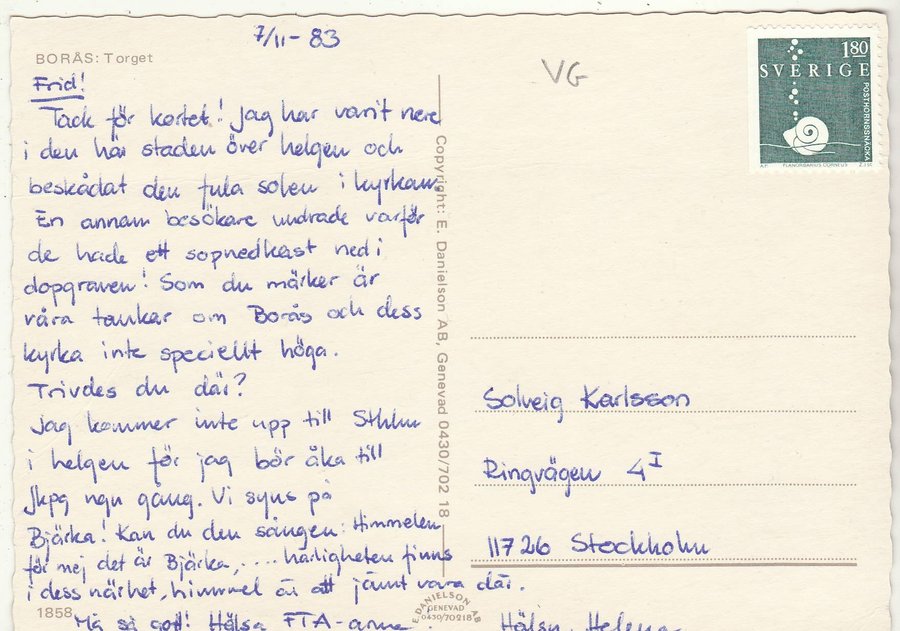 7/11-83
BORÅS: Torget
Frid!
Tack för kortet! Jag har varit nere
i den här staden över helgen och
beskådat den fula solen i kyrkan
En annan besökare undrade varför
de hade ett sopnedkast ned i
dopgraven! Som du märker är
våra tankar om Borås och dess
kyrka inte speciellt höga.
Trivdes du där?
Jag kommer inte upp till Sthlm
i helgen för jag bör åka till
Jkpg ngn gång. Vi syns på
Bjärka! Kan du den sången: Himmelen
för mej det är Bjärka, .... härligheten finns
i dess närhet, himmel är att jämt vara där.
Må så gott! Hälsa FTA-arna!
Hälsn. Helena
1858
Copyright: E. Danielson AB, Genevad 0430/702 18
E. DANIELSON AB
GENEVAD
0430/70218
VG
1.80
SVERIGE
POSTHORNSSNÄCKA
PLANORBARIUS CORNEUS
Solveig Karlsson
Ringvägen 4 I
117 26 Stockholm